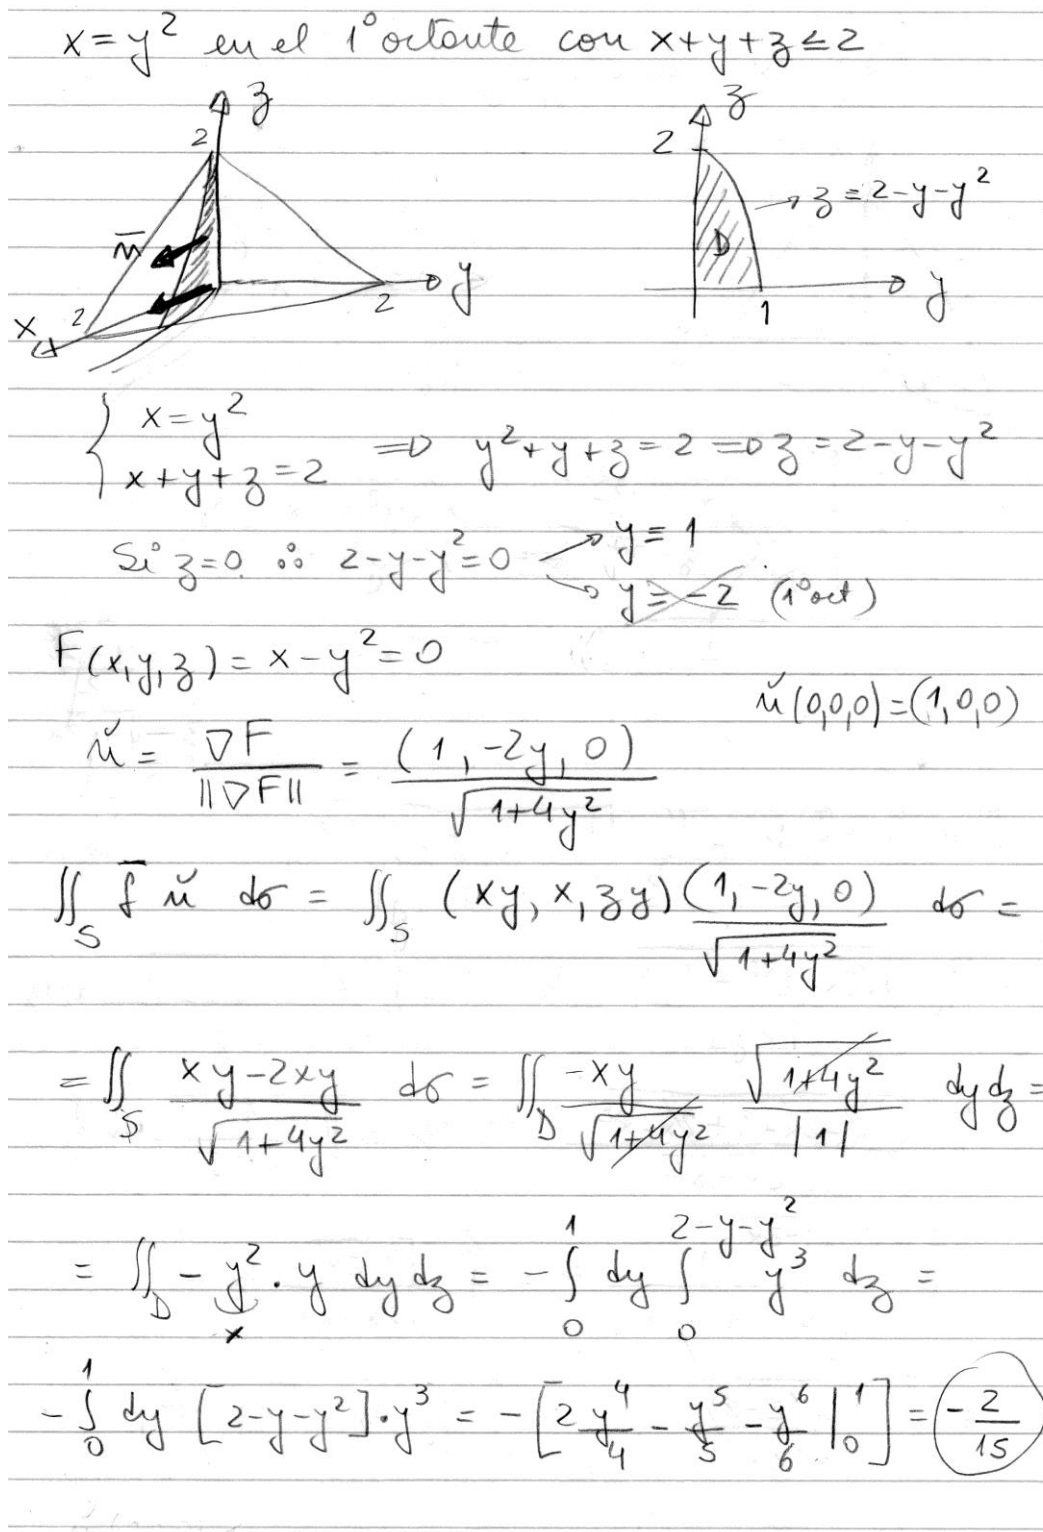 x = y² en el 1° octante con x+y+z ≤ 2
z
2
n̄
x
2
2
y
z
2
z = 2-y-y²
D
1
y
{ x = y²
x+y+z = 2 ⇒ y²+y+z = 2 ⇒ z = 2-y-y²
Si z=0 ∴ 2-y-y²=0 → y = 1
→ y = -2 (1° oct)
F(x,y,z) = x-y² = 0
ň(0,0,0) = (1,0,0)
ň = ∇F / ||∇F|| = (1, -2y, 0) / √(1+4y²)
∬_S f̄ ň dσ = ∬_S (xy, x, zy) (1, -2y, 0) / √(1+4y²) dσ =
= ∬_S (xy-2xy) / √(1+4y²) dσ = ∬_D -xy / √(1+4y²) √(1+4y²) / |1| dy dz =
= ∬_D - y² . y dy dz = - ∫₀¹ dy ∫₀^(2-y-y²) y³ dz =
x
- ∫₀¹ dy [2-y-y²] . y³ = - [2 y⁴/4 - y⁵/5 - y⁶/6 |₀¹] = -2/15